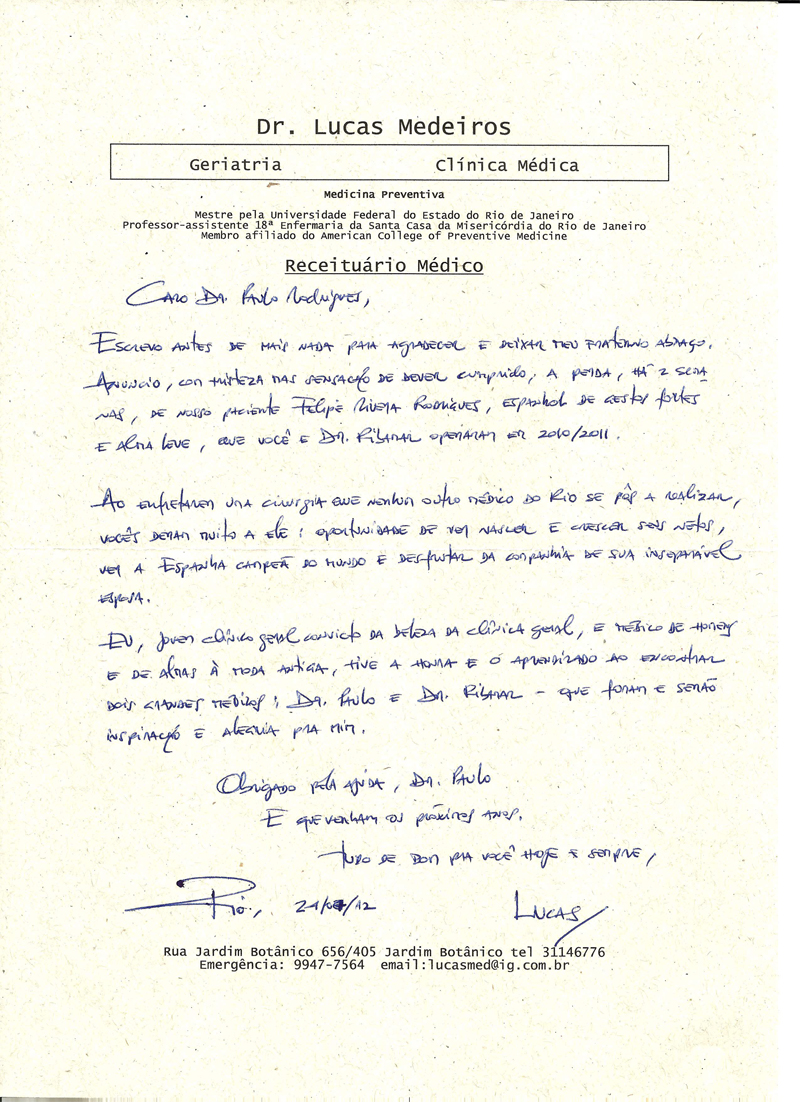 Dr. Lucas Medeiros
Geriatria Clínica Médica
Medicina Preventiva
Mestre pela Universidade Federal do Estado do Rio de Janeiro
Professor-assistente 18ª Enfermaria da Santa Casa da Misericórdia do Rio de Janeiro
Membro afiliado do American College of Preventive Medicine
Receituário Médico
Caro Dr. Paulo Rodrigues,
Escrevo antes de mais nada para agradecer e deixar meu fraterno abraço.
Anuncio, com tristeza mas sensação de dever cumprido, a perda, há 2 sema
nas, de nosso paciente Felipe Rivera Rodrigues, espanhol de gestos fortes
e alma leve, que você e Dr. Ribamar operaram em 2010/2011.
Ao enfretarem uma cirurgia que nenhum outro médico do Rio se pôs a realizar,
vocês deram muito a ele: oportunidade de ver nascer e crescer seus netos,
ver a Espanha campeã do mundo e desfrutar da companhia de sua inseparável
esposa.
Eu, jovem clínico geral convicto da beleza da clínica geral, e médico de homens
e de almas à moda antiga, tive a honra e o aprendizado ao encontrar
dois grandes médicos: Dr. Paulo e Dr. Ribamar - que foram e serão
inspiração e alegria pra mim.
Obrigado pela ajuda, Dr. Paulo
E que venham os próximos anos.
Tudo de bom pra você hoje e sempre,
Rio, /12 Lucas
Rua Jardim Botânico 656/405 Jardim Botânico tel 31146776
Emergência: 9947-7564 email:lucasmed@ig.com.br